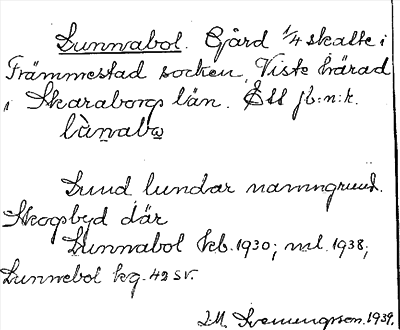 Lunnabol. Gård 1/4 skatte i
Främmestad socken, Viste härad
i Skaraborgs län. Ett jb:n:r.
lùnabω
Lund lundar namngrund.
Skogsbyd där
Lunnabol kb. 1930; ml. 1938;
Lunnebol kg. 42 SV.
Svenungsson. 1939.